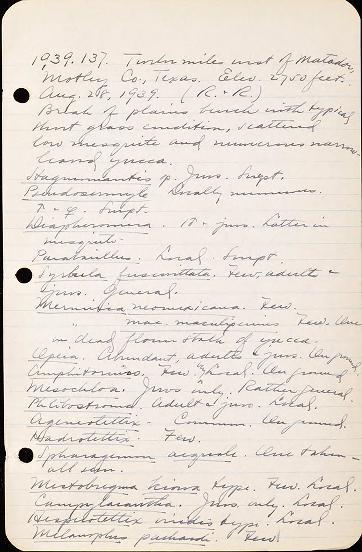 1939.137. Twelve miles west of Matador,
Motley Co., Texas. Elev. 2750 feet.
Aug. 28, 1939. (R. + R.)
Break of plains, bench with typical
short grass condition, scattered
low mesquite and numerous narrow
leaved yucca.
Stagmomantis sp. Juvs. Swept.
Pseudosermyle Locally numerous.
♂ - ♀. Swept.
Diapheromera. ♂ - juvs. Latter in
mesquite.
Parabacillus. Local. Swept.
Syrbula fuscovittata. Few, adults -
juvs. General.
Mermiria neomexicana. Few.
" mac. maculipennis Few. One
in dead flower stalk of yucca.
Opeia. Abundant, adults & juvs. On ground.
Amphitornus. Few & Local. On ground.
Mesochloa. Juvs only. Rather general.
Philibostroma. Adult & juv. Local.
Ageneotettix. Common. On ground.
Hadrotettix. Few.
Spharagemon aequale. One taken -
all seen.
Mestobregma kiowa type. Few. Local.
Campylacantha. Juvs. only. Local.
Hesperotettix viridis type. Local.
Melanoplus packardi. Few